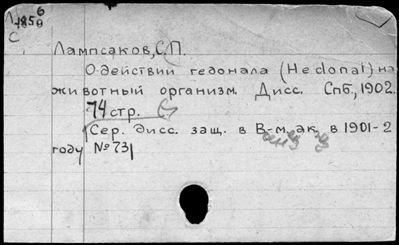 6
С.
Лампсаков, С.П.
О действии гедонала (Hedonal) на
животный организм. Дисс. Спб, 1902.
74 стр.
(Сер. дисс. защ. в В-м. ак. в 1901-2
году №73)